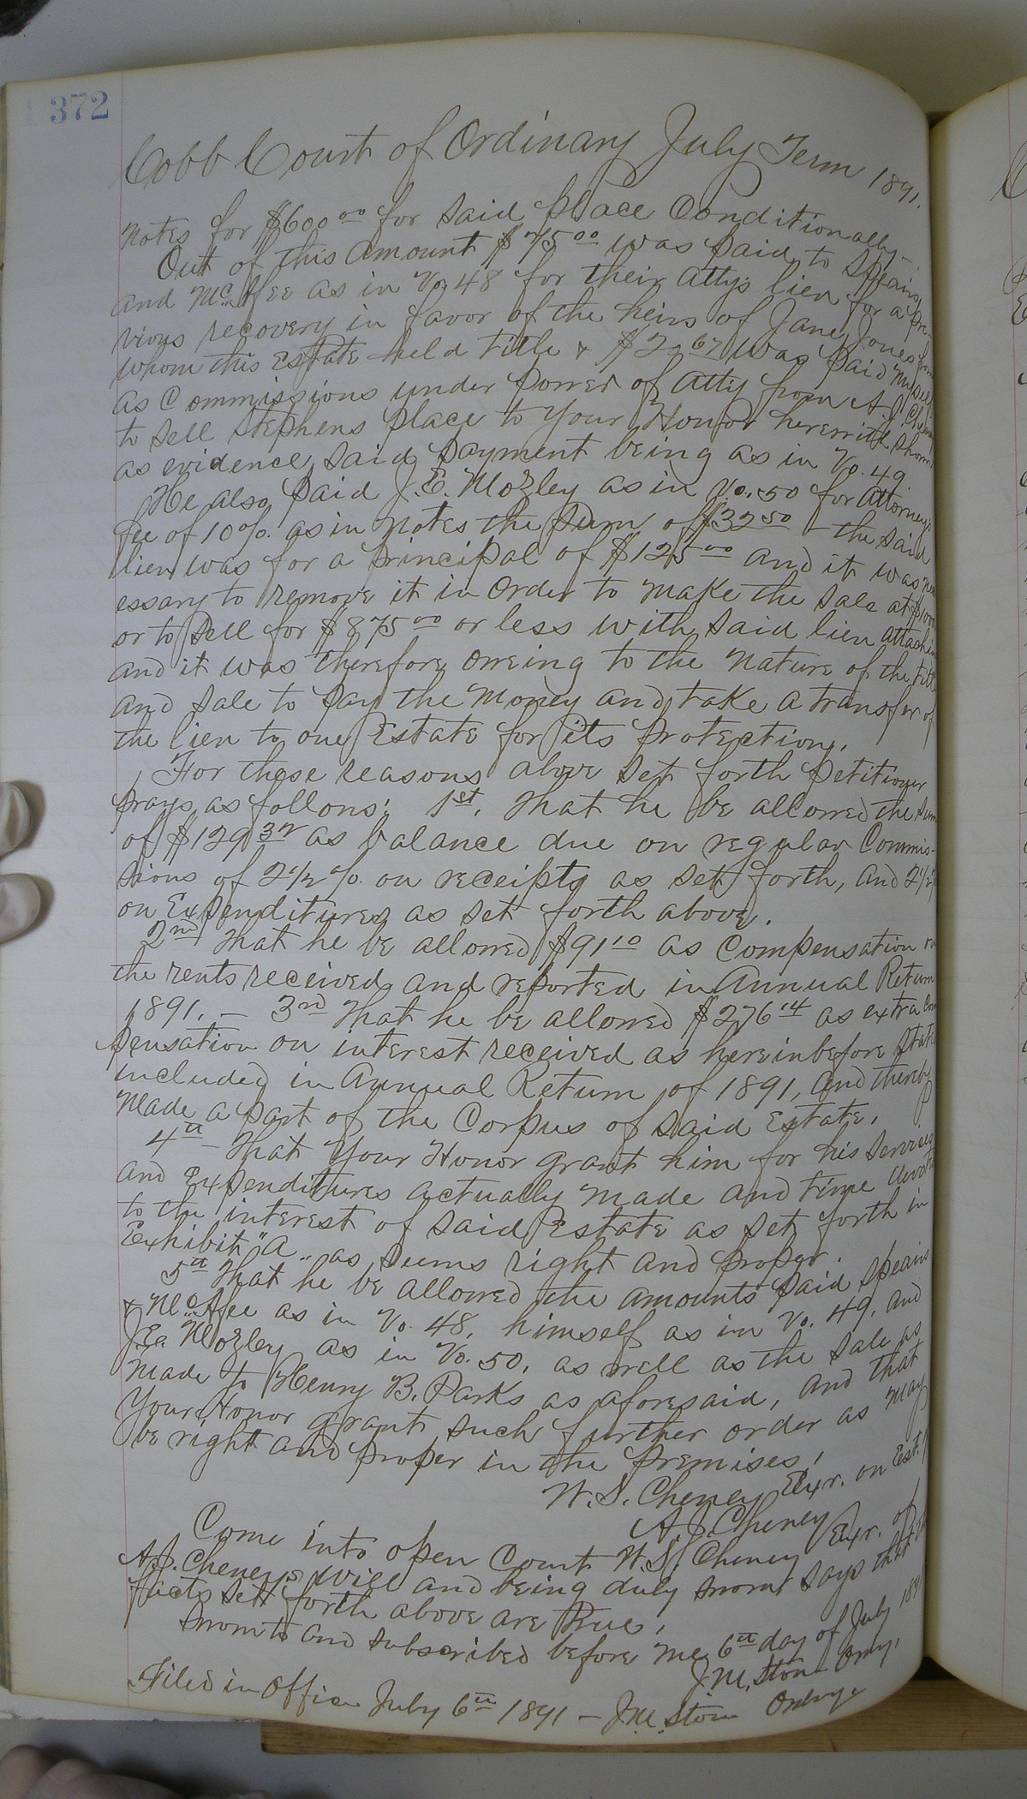 372
Cobb Court of Ordinary July Term 1891.
Notes for $600.00 for said place Conditionally.
Out of this amount $75.00 was paid to Speairs
and McAfee as in Vo. 48 for their attys lien for a pre-
vious recovery in favor of the heirs of Jane Jones from
whom this Estate held title & $ was paid
as Commissions under power of atty from A J Cheney
to sell Stephens place to Your Honor herewith shown
as evidence said payment being as in Vo. 49.
He also paid J. E. Mozley as in Vo. 50 for Attorneys
fee of 10% as in notes the sum of $32.50 - the said
lien was for a principal of $125.00 and it was nec
essary to remove it in order to make the sale at
or to sell for $875.00 or less with said lien attaching
and it was therefore oweing to the nature of the title
and sale to pay the money and take a transfer of
the lien to one Estate for its protection.
For these reasons above set forth petitioner
prays as follows; 1st. That he be allowed the sum
of $129.32 as balance due on regular Commis-
sions of 2½% on receipts as set forth, and 2½%
on Expenditures as set forth above.
2nd That he be allowed $91.10 as compensation on
the rents received and reported in Annual Return
1891. - 3rd That he be allowed $276.14 as extra com
pensation on interest received as hereinbefore stated
included in Annual Return of 1891, and thereby
made a part of the Corpus of said Estate.
4th That Your Honor grant him for his services
and Expenditures actually made and time devoted
to the interest of said Estate as set forth in
Exhibit "A" as seems right and proper.
5th That he be allowed the amounts paid Speairs
& McAfee as in Vo. 48, himself as in Vo. 49, and
J.E. Mozley as in Vo. 50, as well as the sale as
made to Henry B. Parks as aforesaid, and that
Your Honor grant such further order as may
be right and proper in the premises.
W. S. Cheney Exr. on Est.
A. J. Cheney
Come into open Court W. S. Cheney Exr. of
A.J. Cheneys will and being duly sworn says that the
facts set forth above are true.
Sworn to and subscribed before me 6th day of July 1891
J.M. Stone Ordny.
Filed in Office July 6th 1891 - J.M. Stone Ordny